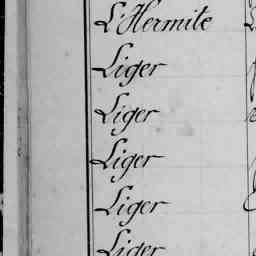 L'Hermite
Liger
Liger
Liger
Liger
Liger